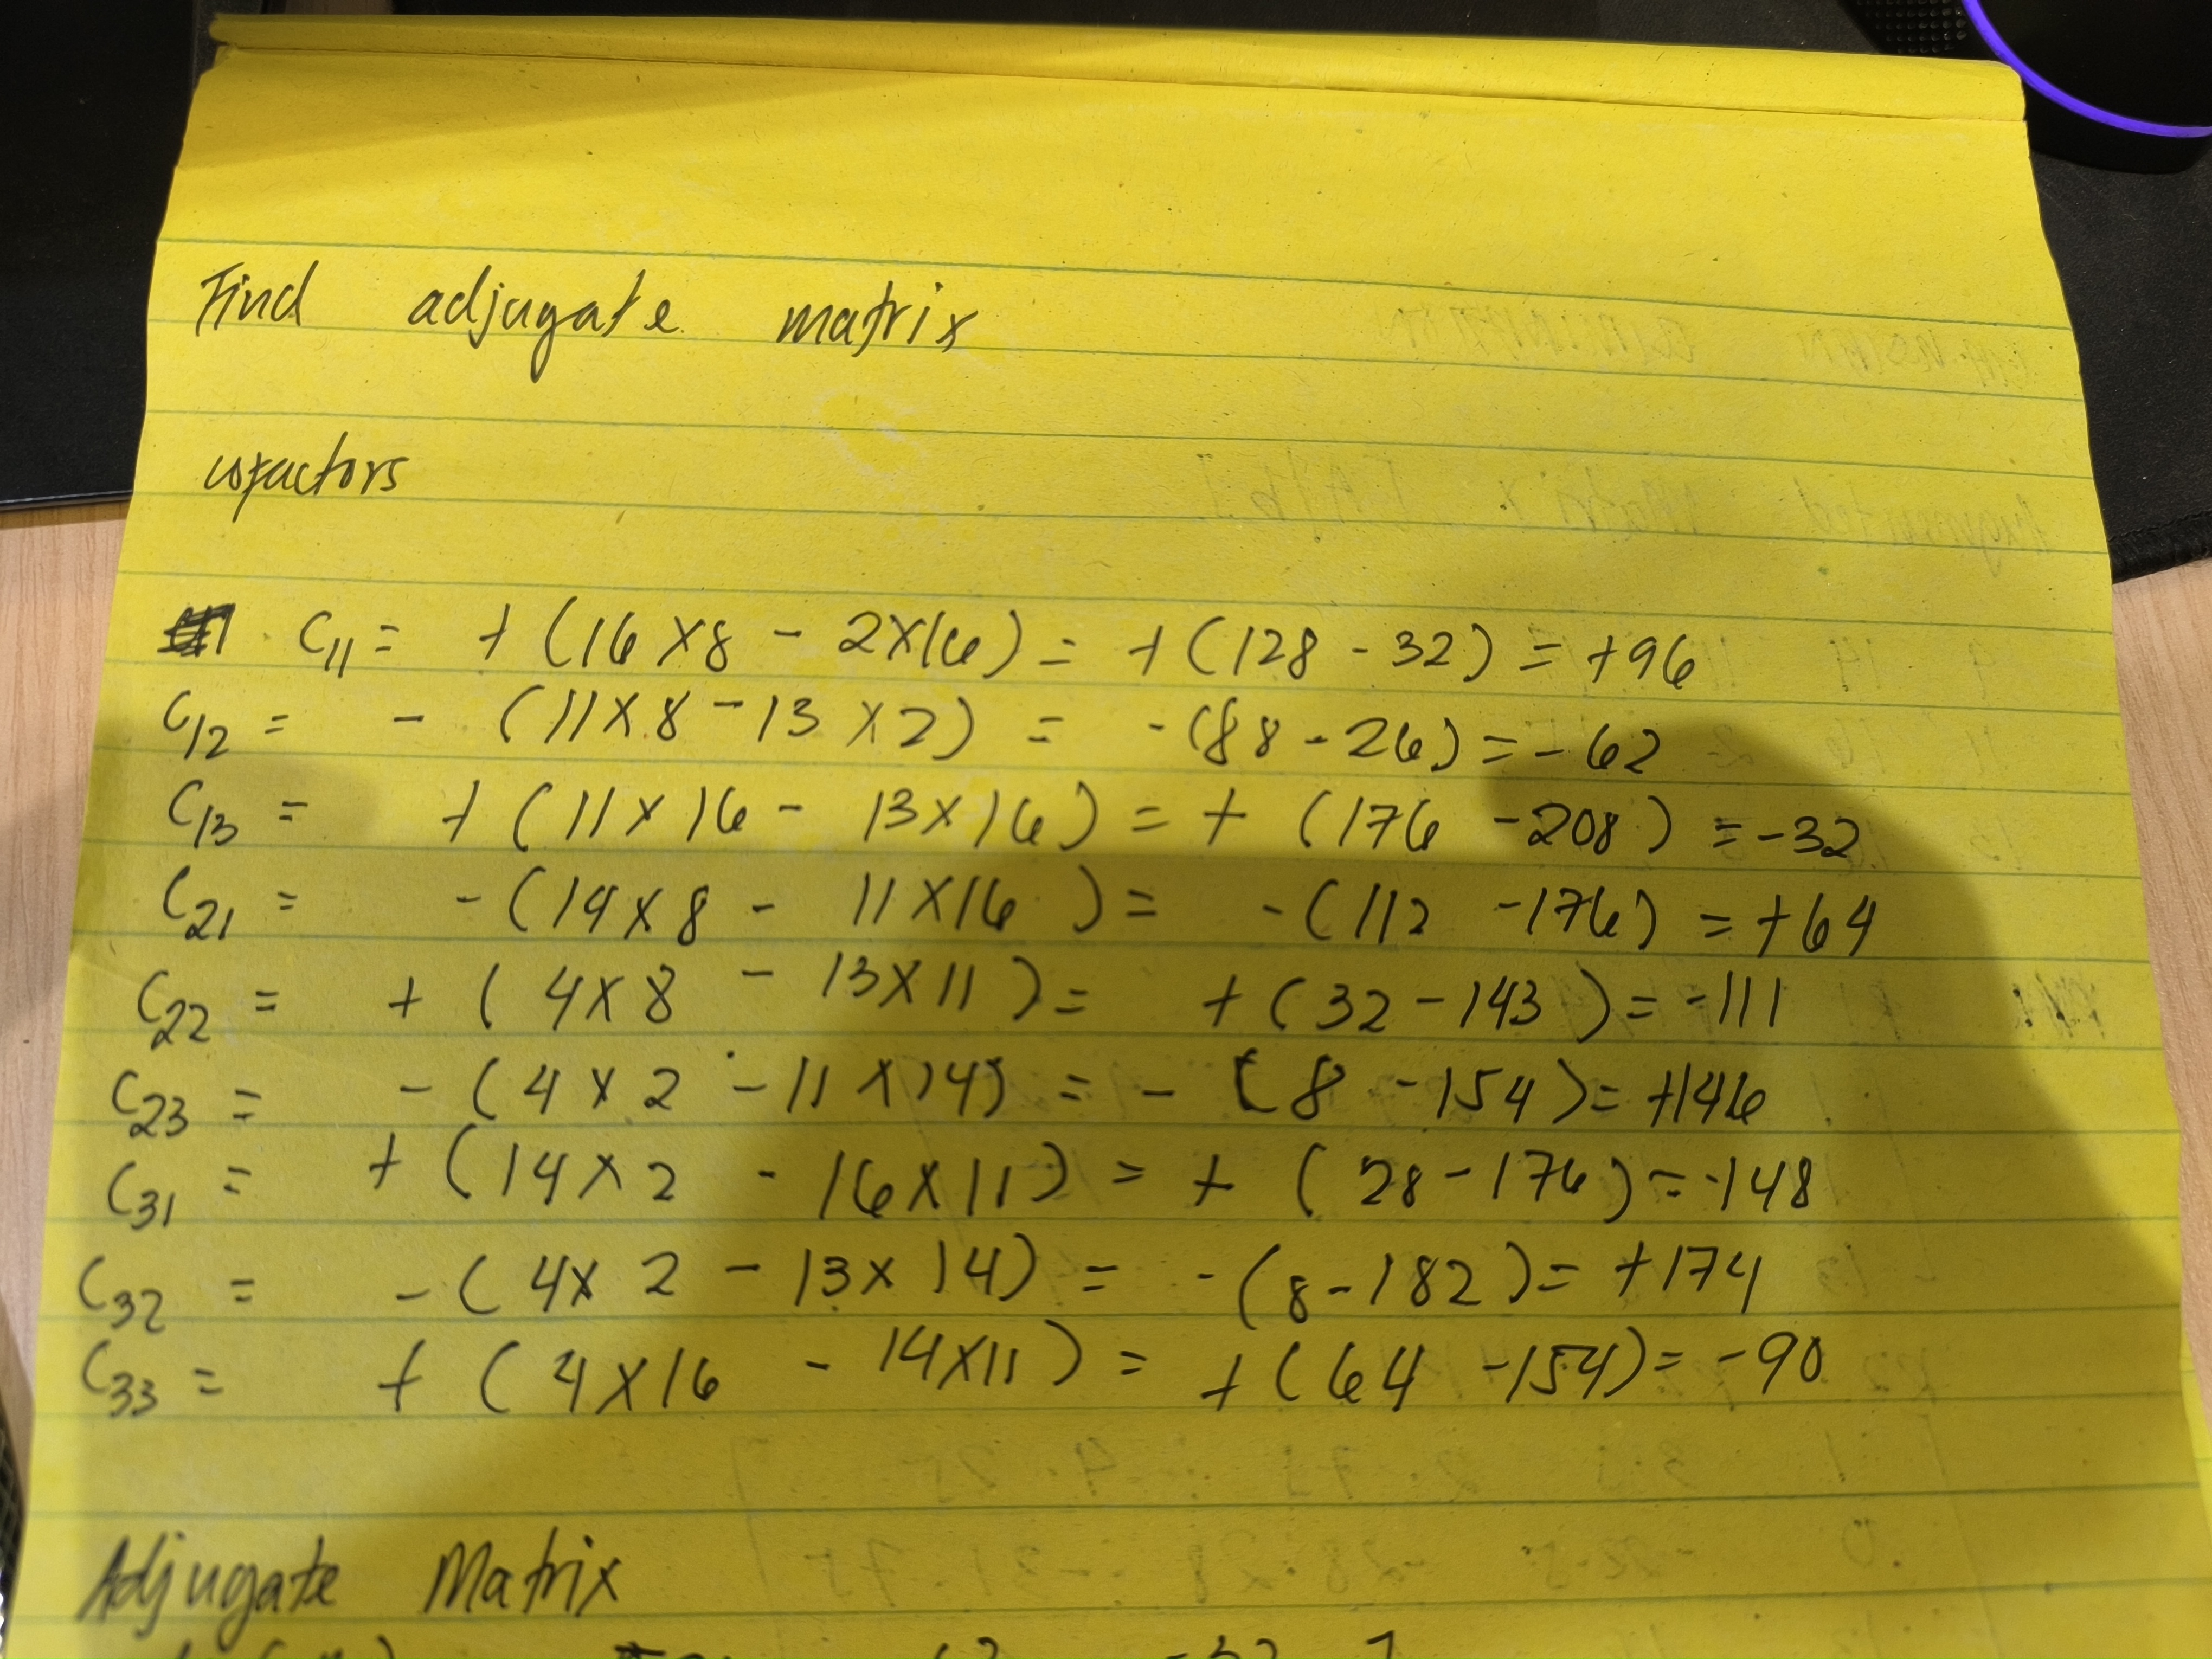 Find adjugate matrix
cofactors
C11 = + (16 x 8 - 2 x 16) = + (128 - 32) = +96
C12 = - (11 x 8 - 13 x 2) = -(88 - 26) = - 62
C13 = + (11 x 16 - 13 x 16) = + (176 - 208) = -32
C21 = -(14 x 8 - 11 x 16) = -(112 - 176) = +64
C22 = + (4 x 8 - 13 x 11) = + (32 - 143) = -111
C23 = - (4 x 2 - 11 x 14) = - (8 - 154) = +146
C31 = + (14 x 2 - 16 x 11) = + (28 - 176) = -148
C32 = -(4 x 2 - 13 x 14) = -(8 - 182) = +174
C33 = + (4 x 16 - 14 x 11) = + (64 - 154) = -90
Adjugate Matrix